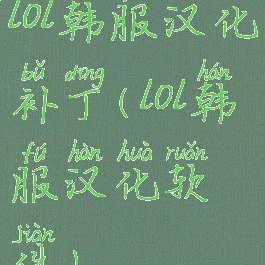 lol韩服汉化
bǔ dīng
补丁(lol韩
hán
fú hàn huà ruǎn
服汉化软
jiàn
件)